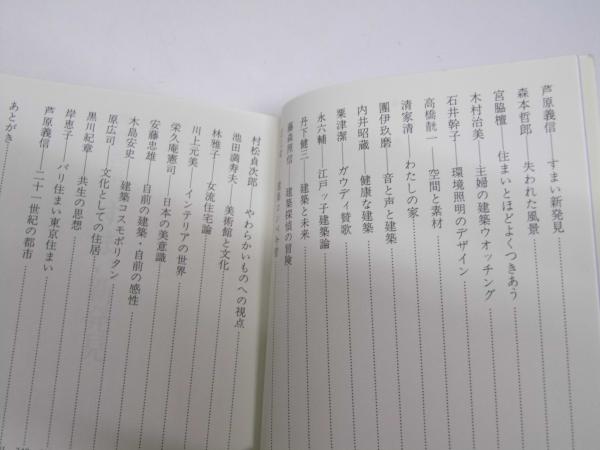 芦原義信――すまい新発見
森本哲郎――失われた風景
宮脇檀――住まいとほどよくつきあう
木村治美――主婦の建築ウオッチング
石井幹子――環境照明のデザイン
高橋靗一――空間と素材
清家清――わたしの家
團伊玖磨――音と声と建築
内井昭蔵――健康な建築
粟津潔――ガウディ賛歌
永六輔――江戸ッ子建築論
丹下健三――建築と未来
藤森照信――建築探偵の冒険
村松貞次郎――やわらかいものへの視点
池田満寿夫――美術館と文化
林雅子――女流住宅論
川上元美――インテリアの世界
栄久庵憲司――日本の美意識
安藤忠雄――自前の建築・自前の感性
木島安史――建築コスモポリタン
原広司――文化としての住居
黒川紀章――共生の思想
岸恵子――パリ住まい東京住まい
芦原義信――二十一世紀の都市
あとがき